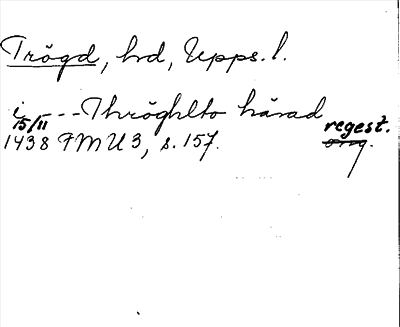 Trögd, hd, Upps. l.
i - - - Thröghlto härad
15/11 1438 FMU 3, s. 157. regest.
orig.